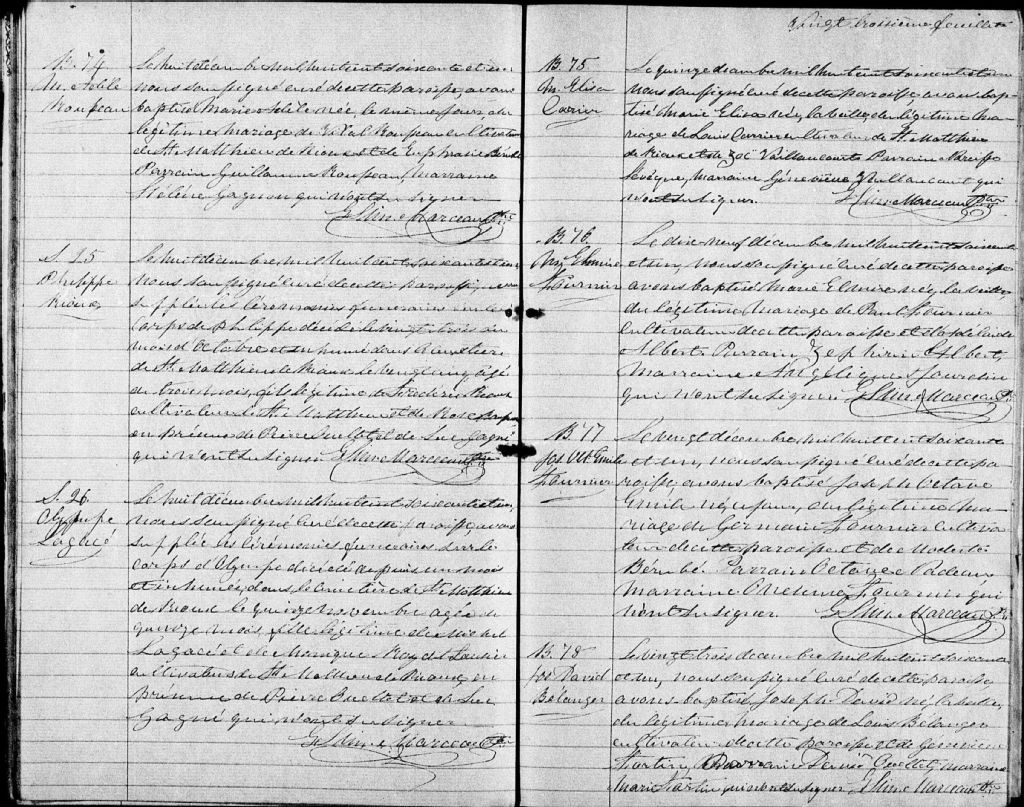 B. 74
M. Adèle
Rousseau
Le huit décembre mil huit cent soixante et un
nous soussigné curé de cette paroisse, avons
baptisé Marie Adèle née, le même jour, du
légitime mariage de Vital Rousseau cultivateur
de St Matthieu de Rioux et de Euphrasie
Parrain Guillaume Rousseau, Marraine
Hélène Gagnon qui n'ont su signer
Marceau Ptre
S. 25
Philippe
Rioux
Le huit décembre mil huit cent soixante et un
nous soussigné curé de cette paroisse avons
suppléé les cérémonies funéraires sur le
corps de Philippe décédé le vingt trois du
mois d'Octobre et inhumé dans le cimetière
de St Matthieu de Rioux le vingt cinq, agé
de trois mois, fils légitime de Frédéric Rioux
cultivateur de St Matthieu et de Rose
en présence de Pierre Ouellet et de Luc Gagné
qui n'ont su signer Marceau Ptre
S. 26
Olympe
Lagacé
Le huit décembre mil huit cent soixante et un,
nous soussigné curé de cette paroisse, avons
suppléé les cérémonies funéraires sur le
corps d'Olympe décédée depuis un mois
et inhumée, dans le cimetière de St Matthieu
de Rioux le quinze novembre agée de
quinze mois, fille légitime de Michel
Lagacé et de Monique Roy dit Lauzier
cultivateur de St Matthieu de Rioux, en
présence de Pierre Ouellet et de Luc
Gagné qui n'ont su signer
Marceau Ptre
Vingt troisième feuillet
B. 75
M. Elisa
Carrier
Le quinze décembre mil huit cent soixante et un
nous soussigné curé de cette paroisse, avons bap-
tisé Marie Elisa née, la veille, du légitime ma-
riage de Louis Carrier cultivateur de St Matthieu
de Rioux et de Zoé Vaillancourt Parrain
Levêque, Marraine Géneviève Vaillancourt qui
n'ont su signer. Marceau Ptre
B. 76
M. Elmire
Fournier
Le dix neuf décembre mil huit cent soixante
et un, nous soussigné curé de cette paroisse
avons baptisé Marie Elmire née, la veille,
du légitime mariage de Paul Fournier
cultivateur de cette paroisse et d'Adélaïde
Albert Parrain Zéphirin Albert,
Marraine Angélique Jourdin
qui n'ont su signer Marceau Ptre
B. 77
Jos Oct Emile
Fournier
Le vingt décembre mil huit cent soixante
et un, nous soussigné curé de cette pa-
roisse, avons baptisé Joseph Octave
Emile né ce jour, du légitime ma-
riage de Germain Fournier cultiva-
teur de cette paroisse et de Modeste
Bérubé. Parrain Octave
Marraine Fournier qui
n'ont su signer Marceau Ptre
B. 78
Jos David
Bélanger
Le vingt trois décembre mil huit cent soixante
et un, nous soussigné curé de cette paroisse,
avons baptisé Joseph David né la veille,
du légitime mariage de Louis Bélanger
cultivateur de cette paroisse et de Geneviève
Parrain Ouellet, Marraine
Marie qui n'ont su signer Marceau Ptre